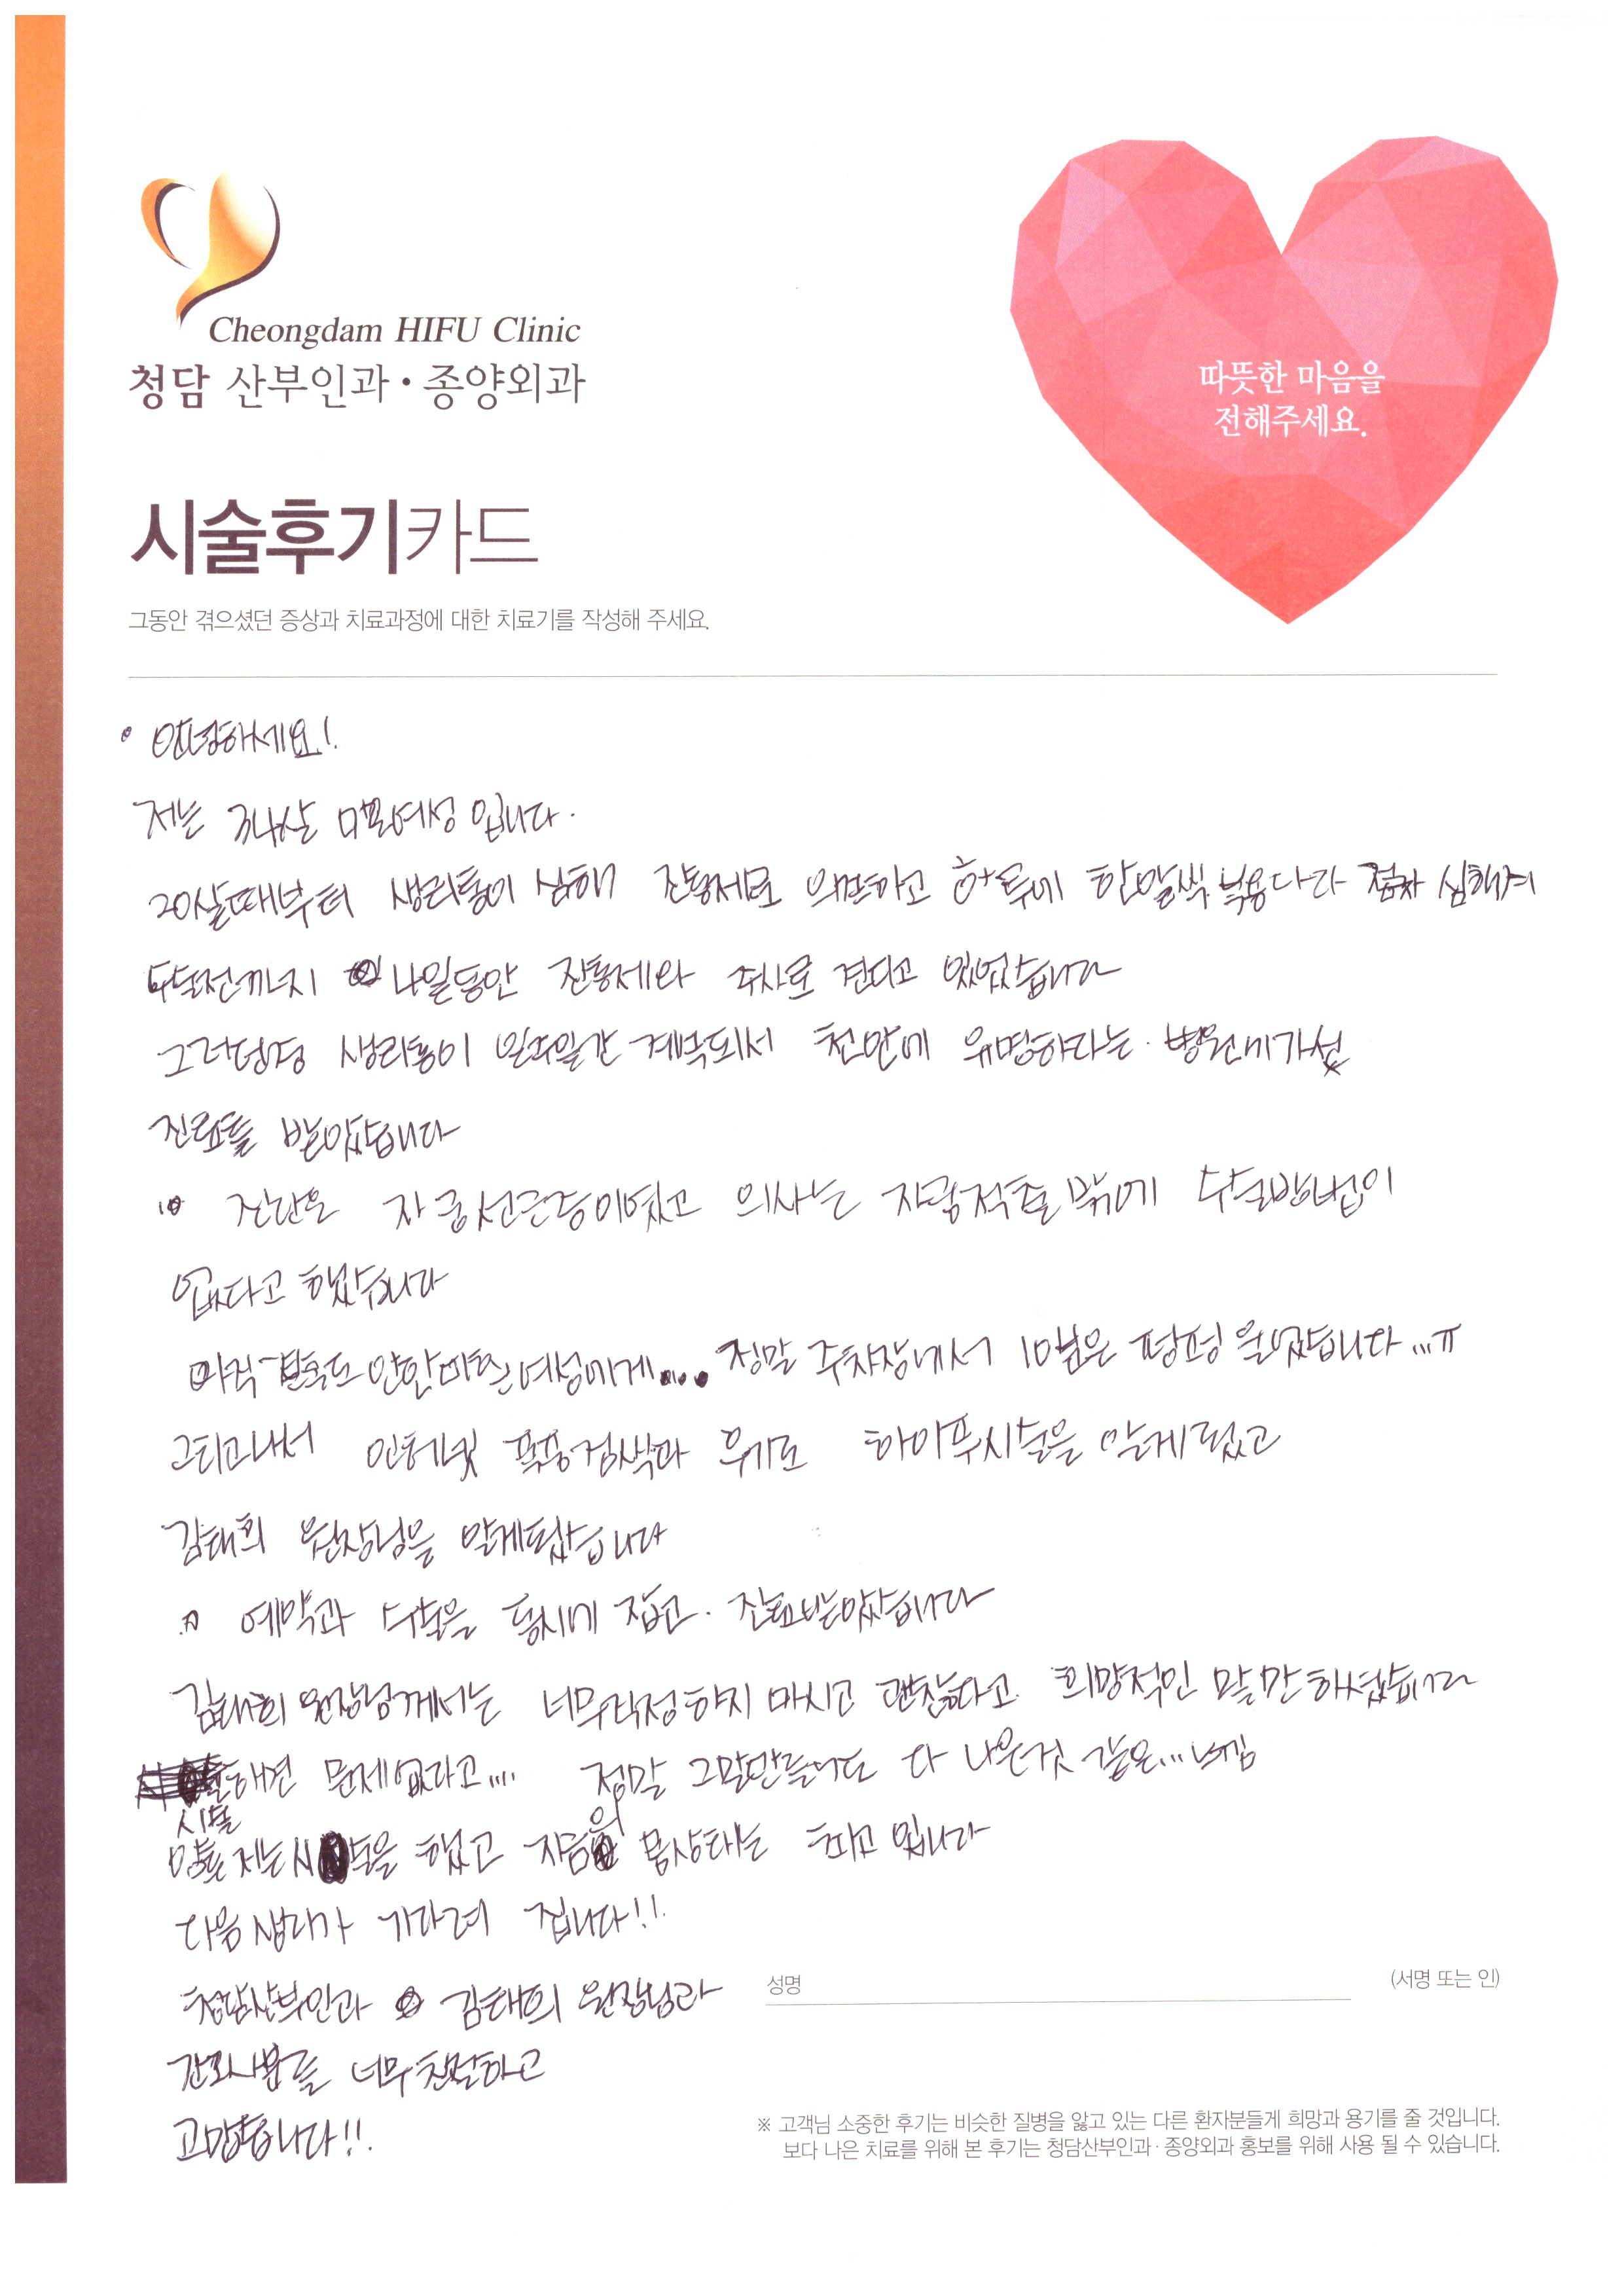 Cheongdam HIFU Clinic
청담 산부인과·종양외과
따뜻한 마음을
전해주세요.
시술후기카드
그동안 겪으셨던 증상과 치료과정에 대한 치료기를 작성해 주세요.
안녕하세요!
저는 34살 미혼여성 입니다.
20살때부터 생리통이 심해 진통제로 의존하고 하루에 한알씩 복용다가 점차 심해져
수술전까지 4일동안 진통제와 주사로 견디고 있었습니다
그러던중 생리통이 일주일간 계속되서 천안에 유명하다는 병원에가서
진료를 받았습니다
진단은 자궁선근증이였고 의사는 자궁적출밖에 수술방법이
없다고 했습니다
아직 결혼도 안한 미혼여성에게.... 정말 주차장에서 10분은 펑펑 울었습니다...ㅠ
그리고나서 인터넷 폭풍검색과 후기로 하이푸시술을 알게됬고
김태희 원장님을 알게됬습니다
예약과 수술을 동시에 잡고. 진료받았습니다
김태희 원장님께서는 너무걱정하지 마시고 괜찮다고 희망적인 말만하셨습니다
시술해면 문제없다고.... 정말 그말만들어도 다 나은것 같은... 느낌
암튼 저는시술을 했고 지금의 몸상태는 최고 입니다
다음생리가 기다려 집니다!!
청담산부인과 김태희 원장님과
간호사분들 너무친절하고
고맙습니다!!
성명
(서명 또는 인)
※ 고객님 소중한 후기는 비슷한 질병을 앓고 있는 다른 환자분들게 희망과 용기를 줄 것입니다.
보다 나은 치료를 위해 본 후기는 청담산부인과·종양외과 홍보를 위해 사용 될 수 있습니다.